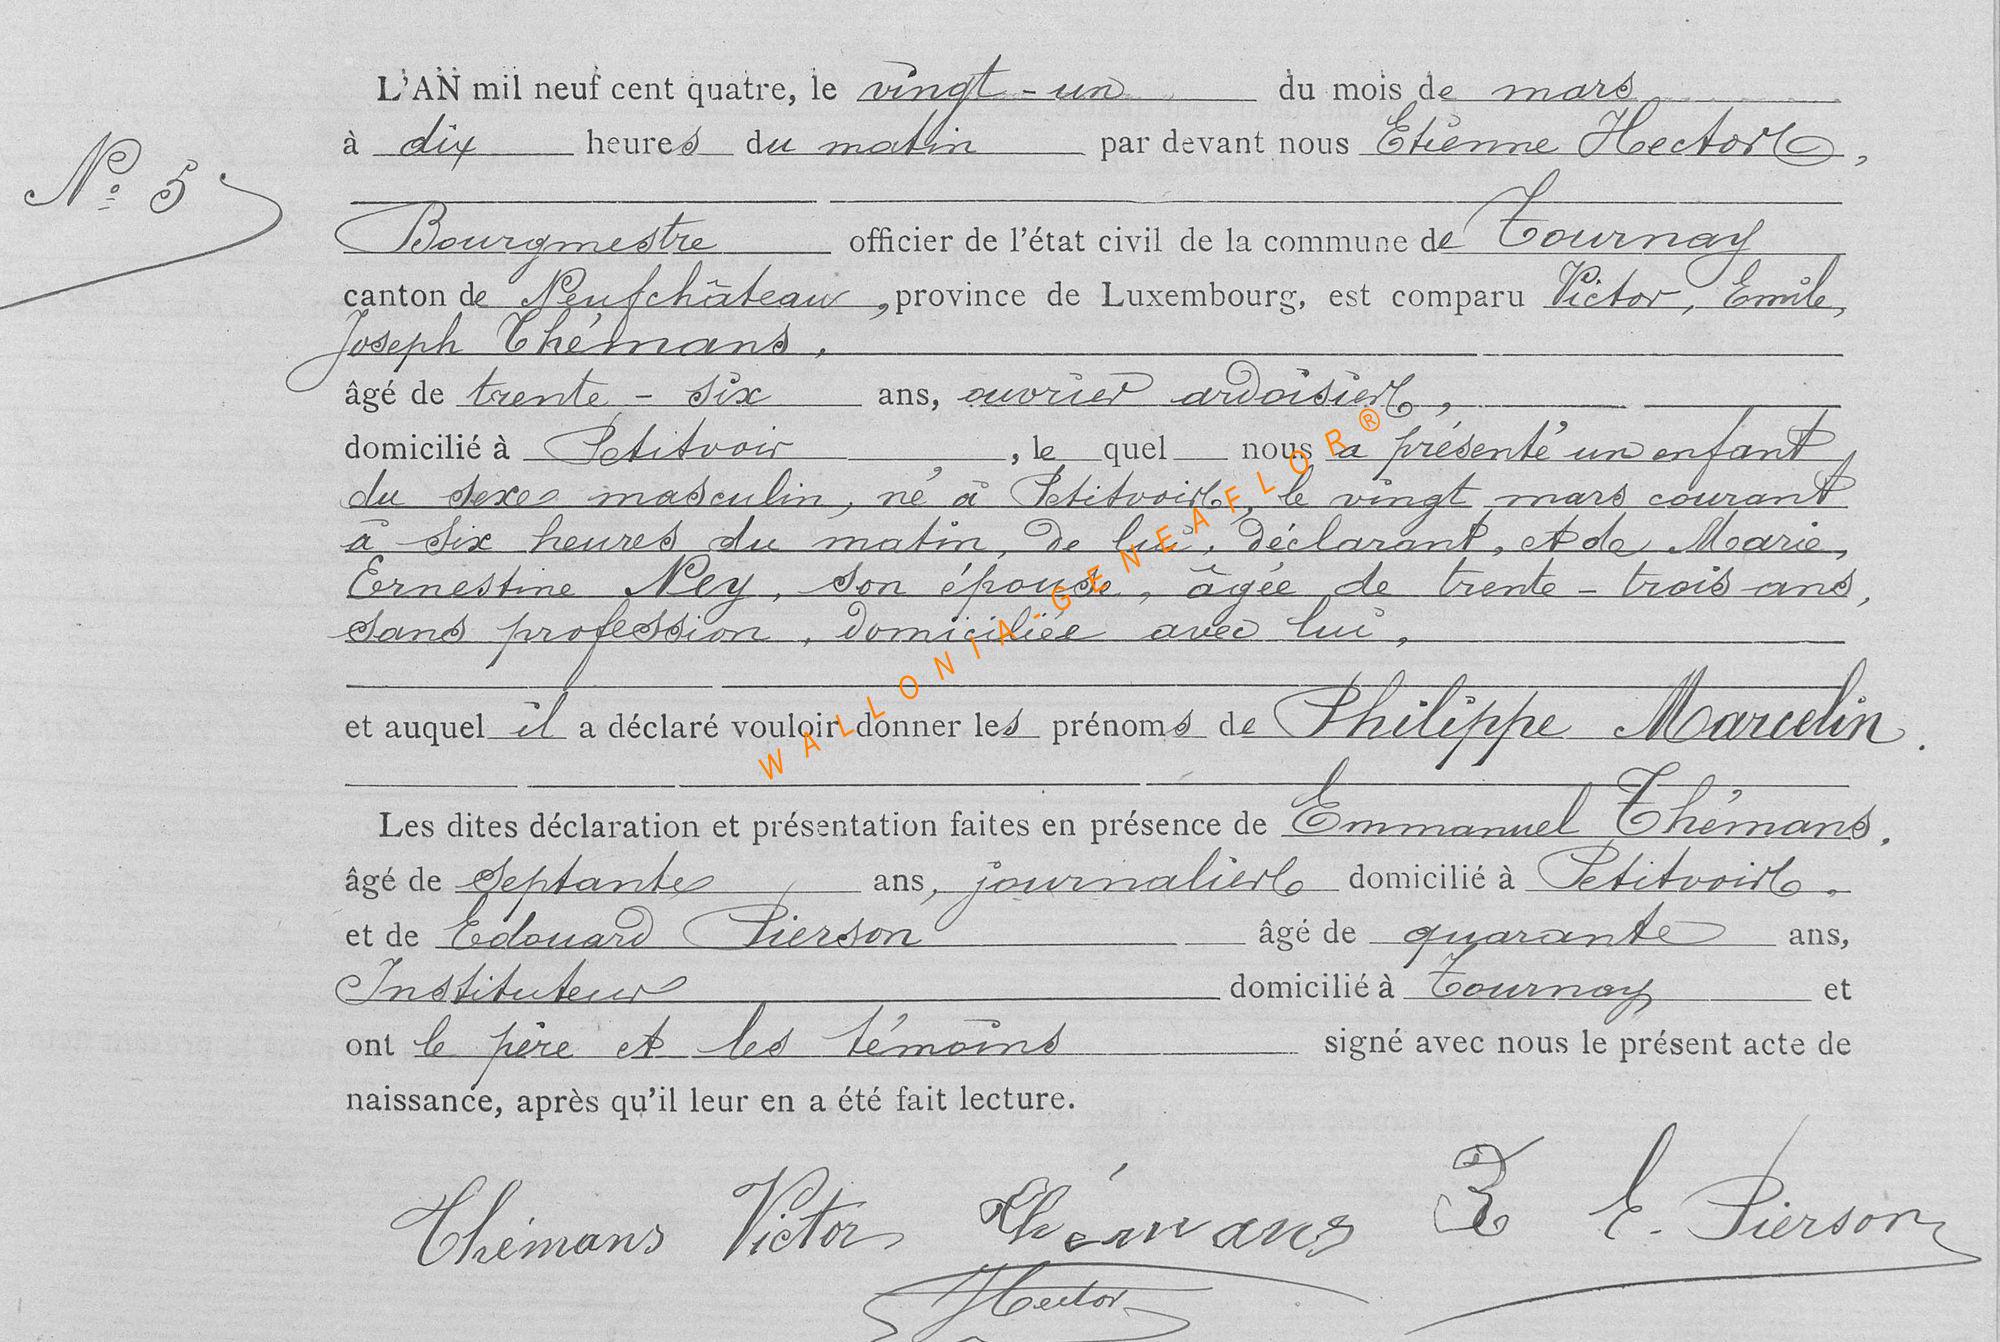 L'AN mil neuf cent quatre, le vingt-un du mois de mars
à dix heures du matin par devant nous Etienne Hector,
N° 5
Bourgmestre officier de l'état civil de la commune de Tournay
canton de Neufchâteau, province de Luxembourg, est comparu Victor, Emile,
Joseph Thémans,
âgé de trente-six ans, ouvrier ardoisier,
domicilié à Petitvoir, le quel nous a présenté un enfant
du sexe masculin, né à Petitvoir, le vingt mars courant
à six heures du matin, de lui, déclarant, et de Marie,
Ernestine Ney, son épouse, âgée de trente-trois ans,
sans profession, domiciliée avec lui,
et auquel il a déclaré vouloir donner les prénoms de Philippe Marcelin.
Les dites déclaration et présentation faites en présence de Emmanuel Thémans,
âgé de septante ans, journalier domicilié à Petitvoir,
et de Edouard Pierson âgé de quarante ans,
Instituteur domicilié à Tournay et
ont le père et les témoins signé avec nous le présent acte de
naissance, après qu'il leur en a été fait lecture.
Thémans Victor Thémans E. Pierson
Hector
WALLONIA-GENEAFLOR®